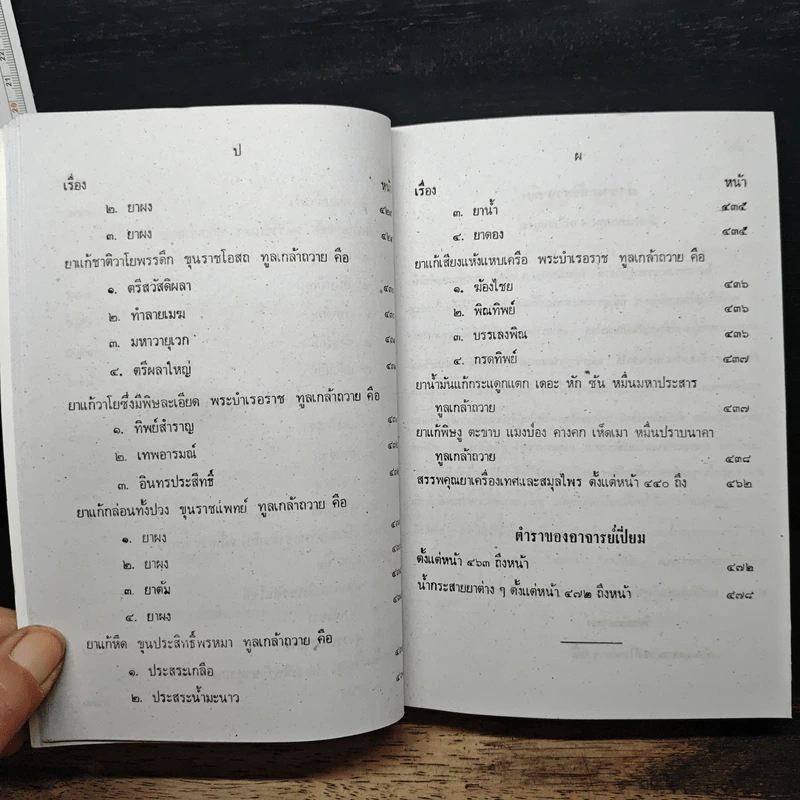 ป
เรื่อง
๒. ยาผง
๓. ยาผง
ยาแก้ชาติวาโยพรรดึก ขุนราชโอสถ ทูลเกล้าถวาย คือ
๑. ตรีสวัสดิผลา
๒. ทำลายเมฆ
๓. มหาวายุเวก
๔. ตรีผลาใหญ่
ยาแก้วาโยซึ่งมีพิษละเอียด พระบำเรอราช ทูลเกล้าถวาย คือ
๑. ทิพย์สำราญ
๒. เทพอารมณ์
๓. อินทรประสิทธิ์
ยาแก้กล่อนทั้งปวง ขุนราชแพทย์ ทูลเกล้าถวาย คือ
๑. ยาผง
๒. ยาผง
๓. ยาต้ม
๔. ยาผง
ยาแก้หืด ขุนประสิทธิ์พรหมา ทูลเกล้าถวาย คือ
๑. ประสระเกลือ
๒. ประสระน้ำมะนาว
ผ
เรื่อง หน้า
๓. ยาน้ำ ๔๓๕
๔. ยาดอง ๔๓๕
ยาแก้เสียงแห้งแหบเครือ พระบำเรอราช ทูลเกล้าถวาย คือ
๑. ฆ้องไชย ๔๓๖
๒. พิณทิพย์ ๔๓๖
๓. บรรเลงพิณ ๔๓๖
๔. กรดทิพย์ ๔๓๗
ยาน้ำมันแก้กระแดูกแตก เดอะ หัก ซ้น หมื่นมหาประสาร
ทูลเกล้าถวาย ๔๓๗
ยาแก้พิษงู ตะขาบ แมงป่อง คางคก เห็ดเมา หมื่นปราบนาคา
ทูลเกล้าถวาย ๔๓๘
สรรพคุณยาเครื่องเทศและสมุลไพร ตั้งแต่หน้า ๔๔๐ ถึง ๔๖๒
ตำราของอาจารย์เปี่ยม
ตั้งแต่หน้า ๔๖๓ ถึงหน้า ๔๗๒
น้ำกระสายยาต่าง ๆ ตั้งแต่หน้า ๔๗๒ ถึงหน้า ๔๗๘